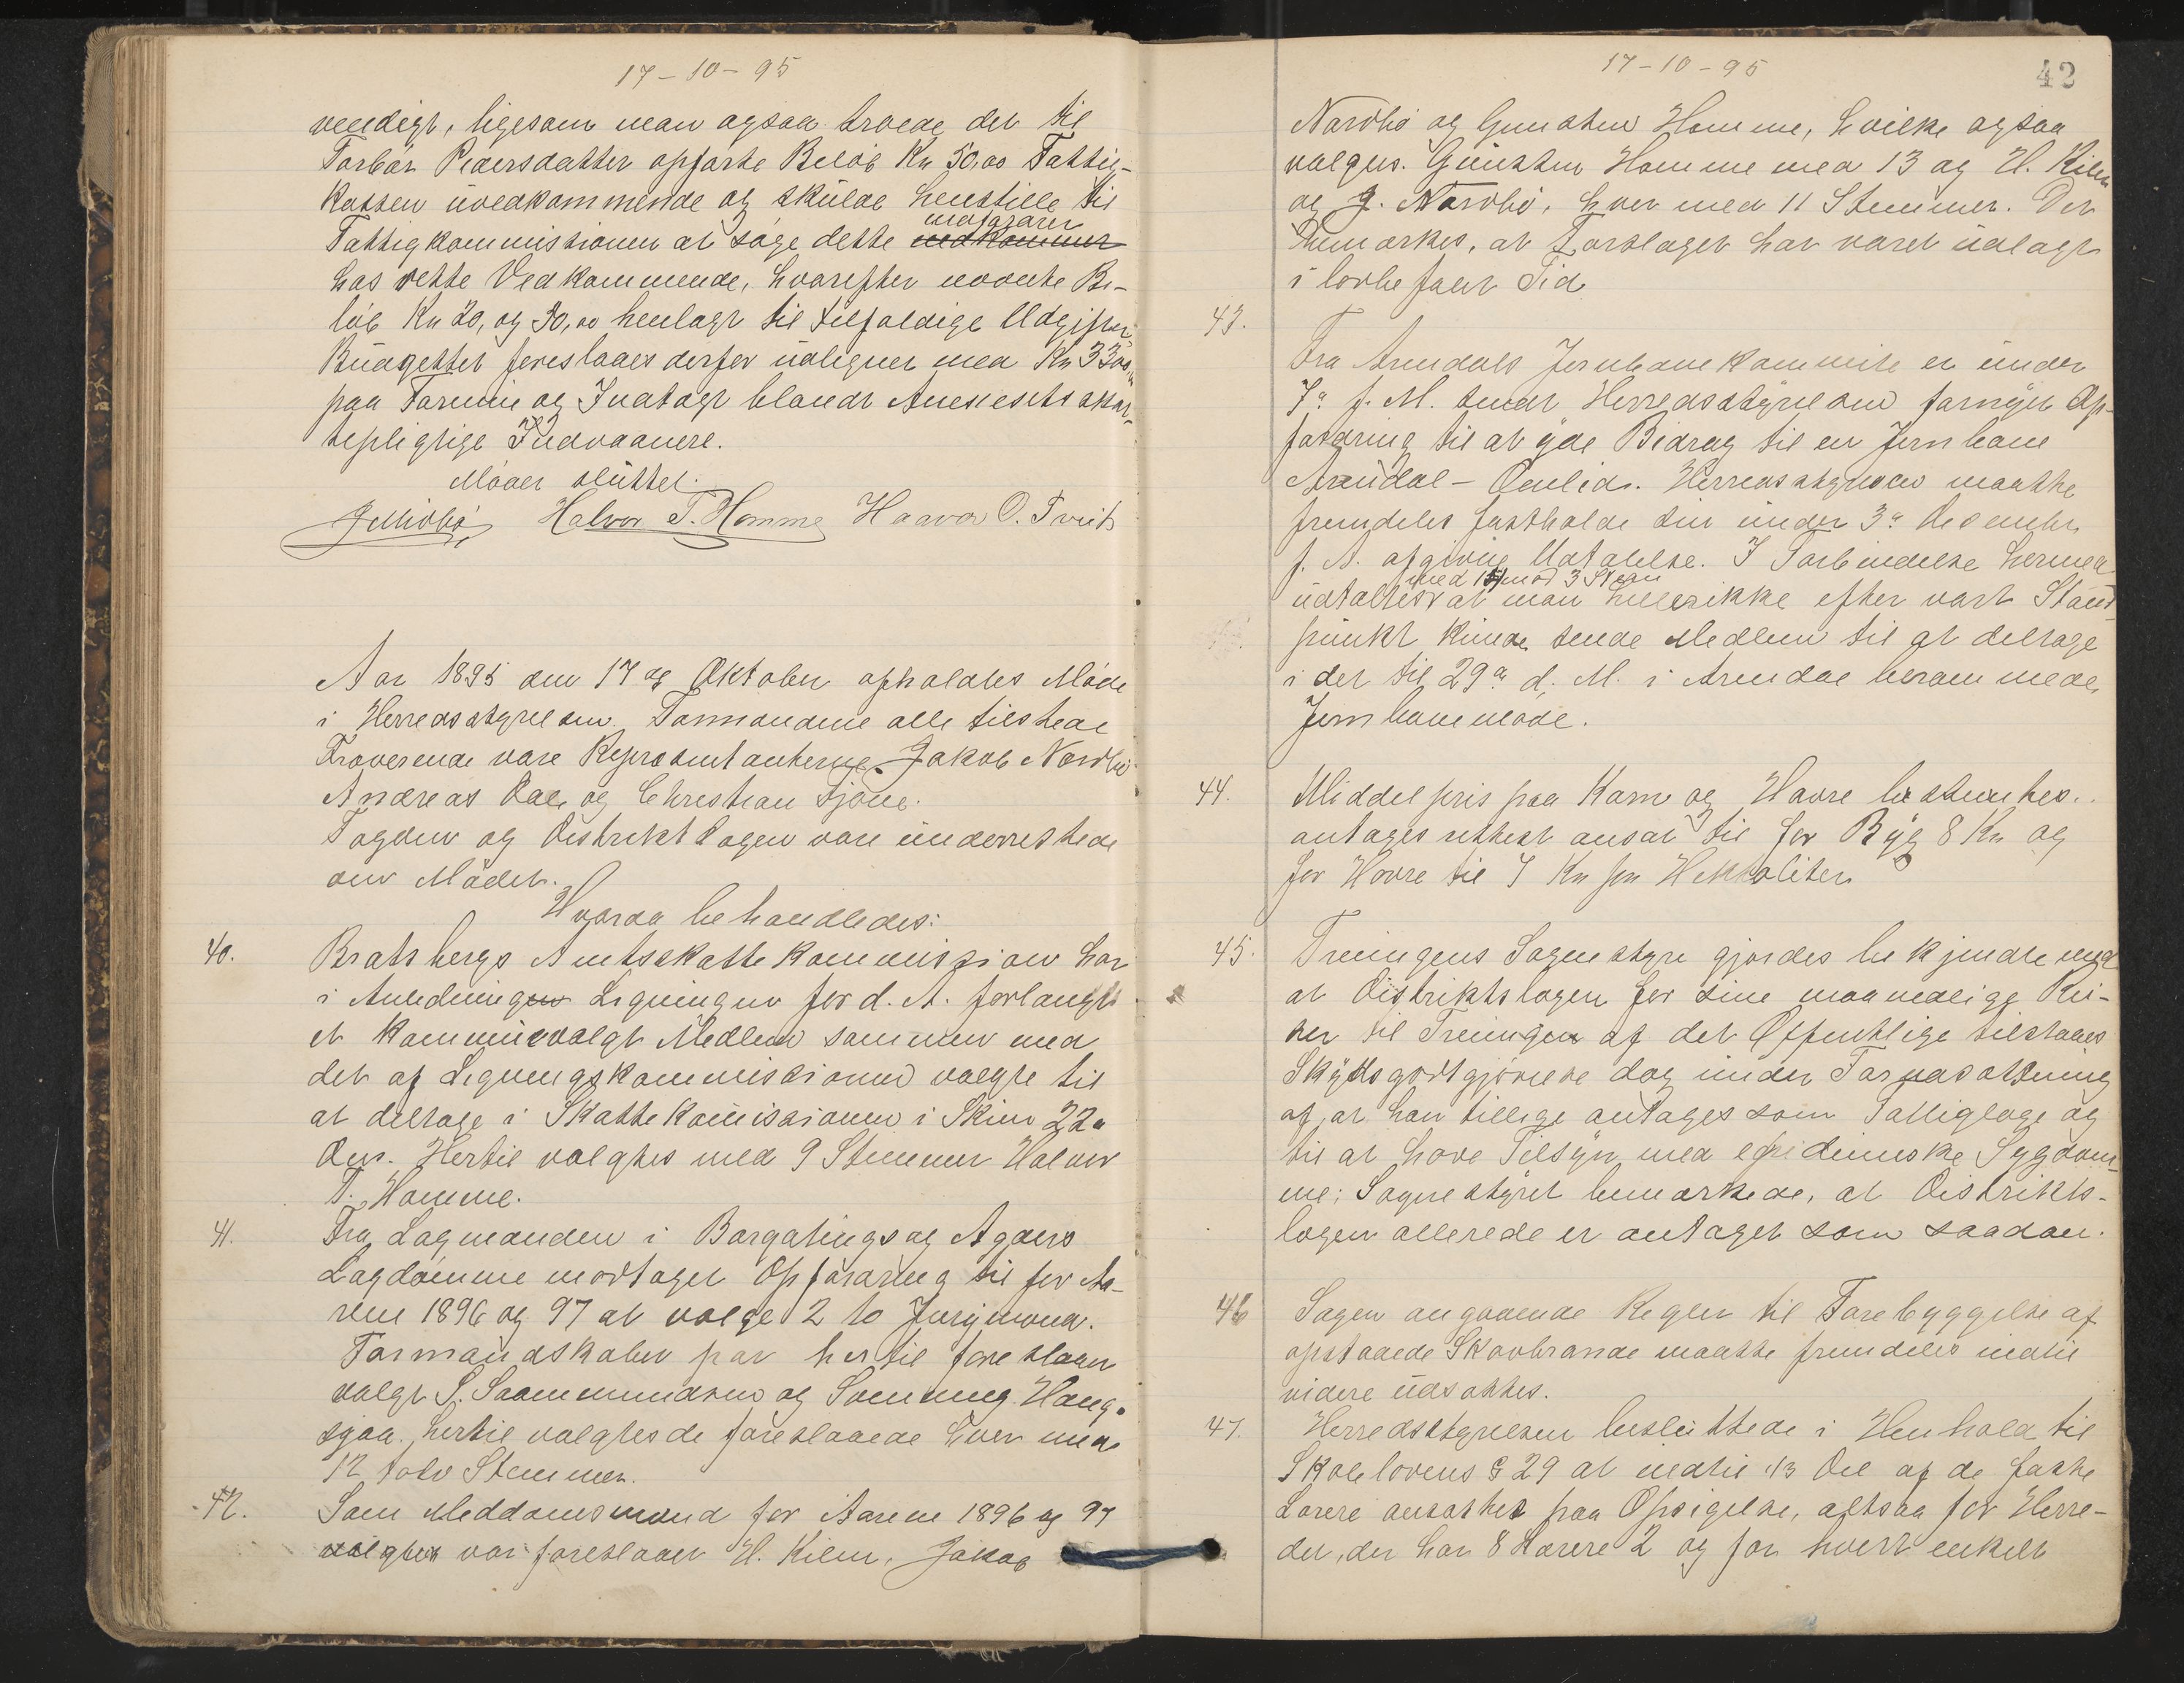 17-10-95
vendigt, ligesom man ogsaa troede det til
Torbør Pedersdatter opførte Beløb Kr 50,00 Fattig-
kassen uvedkommende og skulde henstille til
Fattigkommissionen at søge dette indfaaet
hos rette Vedkommende, hvorefter nævnte Be-
løb Kr 20, og 30,00 henlagt til tilfældige Udgifter.
Budgettet foreslaaes derfor udlignet med Kr 3300,
paa Formue og Indtægt blandt Annexets skat-
tepligtige Indvaanere.
Mødet sluttet.
J Nordbø Halvor T. Homme Haavor O. Tveit
Aar 1895 den 17de Oktober afholdtes Møde
i Herredsstyrelsen. Formændene alle tilstede
Fraværende vare Repræsentanterne Jakob Nordbø
Andreas Dale og Christian Tjøne.
Fogden og Distriktslægen vare underrettede
om Mødet.
Hvorda behandledes:
40. Bratsbergs Amtsskattekommission har
i Anledning Ligningen for d. A. forlangt
et kommunevalgt Medlem sammen med
det af Ligningskommissionen valgte til
at deltage i Skattekomissionen i Skien 22de
Dns. Hertil valgtes med 9 Stemmer Halvor
T. Homme.
41. Fra Lagmanden i Borgatings og Agders
Lagdømme modtaget Opfordring til for Aa-
rene 1896 og 97 at vælge 2 to Jurymænd.
Formandskabet har hertil foreslaaet
valgt S. Saamundsen og Sonnung Haug-
sjaa. hertil valgtes de foreslaaede hver med
12 tolv Stemmer.
42. Som Meddomsmænd for Aarene 1896 og 97
valgtes var foreslaaet H. Kilen, Jakob
17-10-95
42
Nordbø og Gunsten Homme, hvilke ogsaa
valgtes. Gunsten Homme med 13 og H. Kilen
og J. Nordbø, hver med 11 Stemmer. Det
bemærkes, at Forslaget har været udlagt
i lovbefalet Tid
43. Fra Arendals Jernbanekomite er under
7de f. M. sendt Herredsstyrelsen fornyet Op-
fordring til at yde Bidrag til en Jernbane
Arendal - Omlid. Herredsstyrelsen maatte
fremdeles fastholde sin under 3de Desember
f. A. afgivne Udtalelse. I Forbindelse hermed
med 15 mod 3 Stem
udtaltes at man hellerikke efter vort Stand-
punkt kunde sende Medlem til at deltage
i det til 29de d. M. i Arendal berammede
Jernbanemøde.
44. Middelpris paa Korn og Havre bestemtes.
antages rettest ansat til for Byg 8 Kr og
for Havre til 7 Kr pr Hektoliter
45. Treungens Sognestyre gjordes bekjendt med
at Distriktslægen for sine maanedlige Rei-
ser til Treungen af det Offentlige tilstaaes
Skydsgodtgjørelse dog under Forudsætning
af, at han tillige antages som Fattiglæge og
til at have Tilsyn med epidemiske Sygdom-
me; Sognestyret bemærkede, at Distrikts-
lægen allerede er antaget som saadan.
46 Sagen angaaende Regler til Forebyggelse af
opstaaede Skovbrande maatte fremdeles indtil
videre udsættes.
47. Herredsstyrelsen besluttede i Henhold til
Skolelovens § 29 at indtil 1/3 Del af de faste
Lærere ansættes paa Opsigelse, altsaa for Herre-
det, der har 8 Lærere 2 og for hvert enkelt